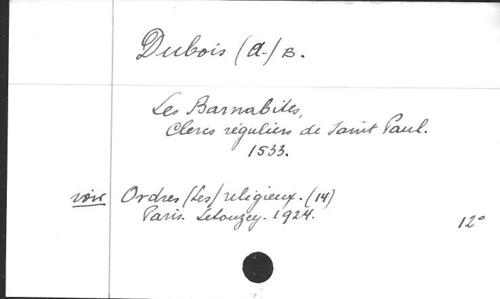 Dubois (A.) B.
Les Barnabites,
Clercs réguliers de Saint Paul.
1533.
voir Ordres (Les) religieux. (14)
Paris. Letouzey. 1924.
12°